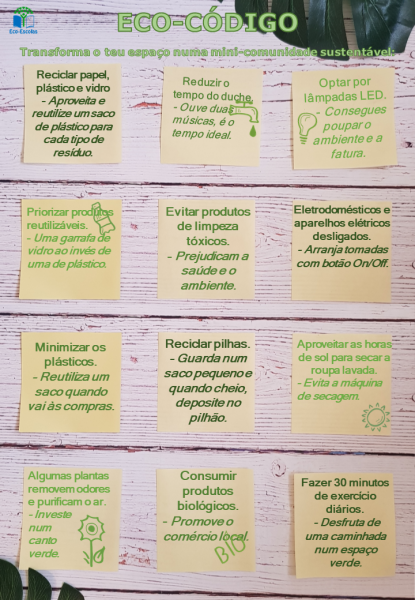 Eco-Escolas
ECO-CÓDIGO
Transforma o teu espaço numa mini-comunidade sustentável:
Reciclar papel,
plástico e vidro
- Aproveita e
reutilize um saco
de plástico para
cada tipo de
resíduo.
Reduzir o
tempo do duche.
- Ouve duas
músicas, é o
tempo ideal.
Optar por
lâmpadas LED.
- Consegues
poupar o
ambiente e a
fatura.
Priorizar produtos
reutilizáveis.
- Uma garrafa de
vidro ao invés de
uma de plástico.
Evitar produtos
de limpeza
tóxicos.
- Prejudicam a
saúde e o
ambiente.
Eletrodomésticos e
aparelhos elétricos
desligados.
- Arranja tomadas
com botão On/Off.
Minimizar os
plásticos.
- Reutiliza um
saco quando
vai às compras.
Reciclar pilhas.
- Guarda num
saco pequeno e
quando cheio,
deposite no
pilhão.
Aproveitar as horas
de sol para secar a
roupa lavada.
- Evita a máquina
de secagem.
Algumas plantas
removem odores
e purificam o ar.
- Investe
num
canto
verde.
Consumir
produtos
biológicos.
- Promove o
comércio local.
BIO
Fazer 30 minutos
de exercício
diários.
- Desfruta de
uma caminhada
num espaço
verde.